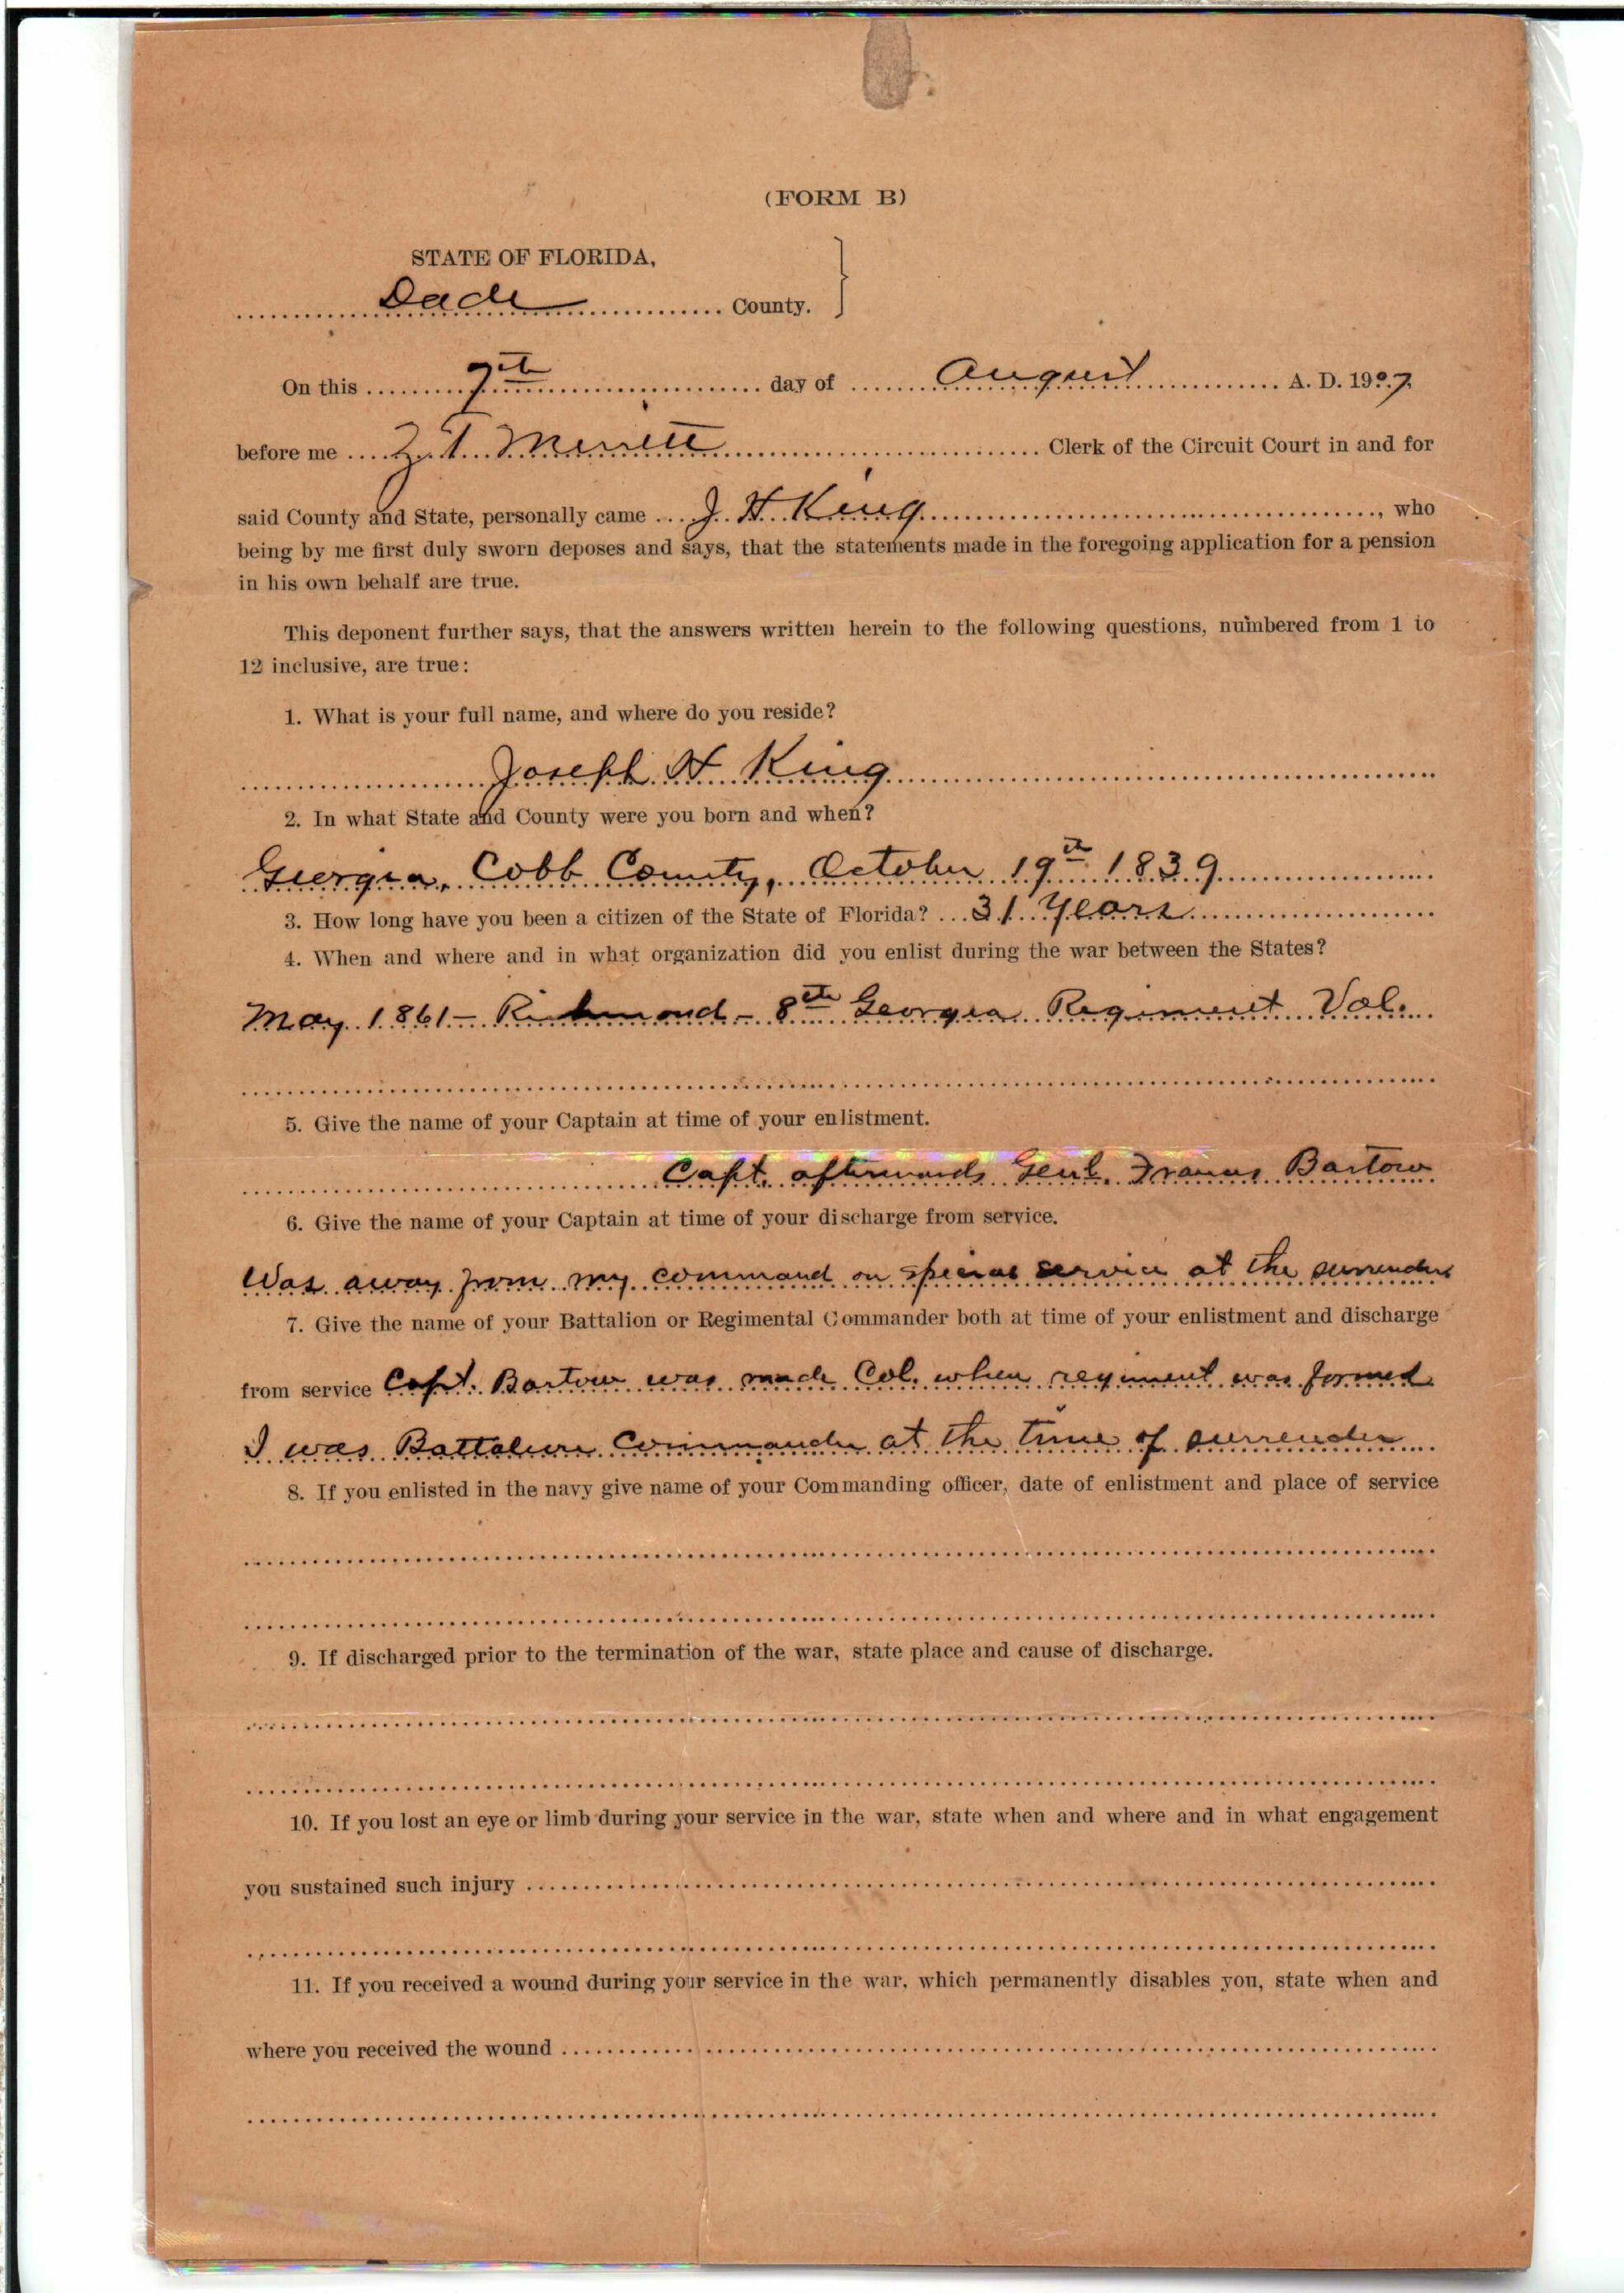 (FORM B)
STATE OF FLORIDA,
Dade County.
On this 7th day of August A. D. 1907,
before me Z. T. Merritt Clerk of the Circuit Court in and for
said County and State, personally came J. H. King, who
being by me first duly sworn deposes and says, that the statements made in the foregoing application for a pension
in his own behalf are true.
This deponent further says, that the answers written herein to the following questions, numbered from 1 to
12 inclusive, are true:
1. What is your full name, and where do you reside?
Joseph H. King
2. In what State and County were you born and when?
Georgia, Cobb County, October 19th 1839
3. How long have you been a citizen of the State of Florida? 31 Years
4. When and where and in what organization did you enlist during the war between the States?
May 1861 - Richmond - 8th Georgia Regiment Vol.
5. Give the name of your Captain at time of your enlistment.
Capt. afterwards Genl. Francis Bartow
6. Give the name of your Captain at time of your discharge from service.
Was away from my command on special service at the surrender
7. Give the name of your Battalion or Regimental Commander both at time of your enlistment and discharge
from service Capt. Bartow was made Col. when regiment was formed
I was Battalion Commander at the time of surrender
8. If you enlisted in the navy give name of your Commanding officer, date of enlistment and place of service
9. If discharged prior to the termination of the war, state place and cause of discharge.
10. If you lost an eye or limb during your service in the war, state when and where and in what engagement
you sustained such injury
11. If you received a wound during your service in the war, which permanently disables you, state when and
where you received the wound